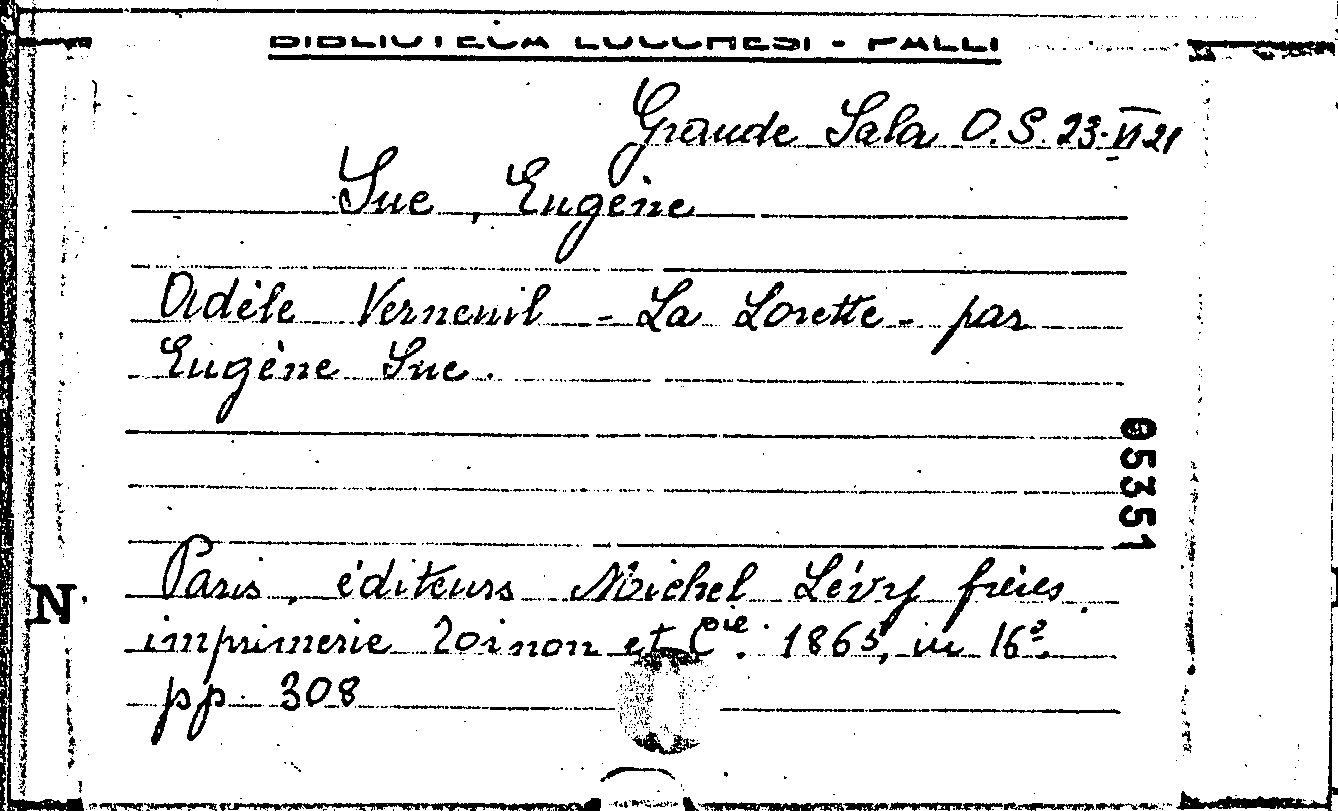 BIBLIOTECA LUCCHESI - PALLI
Grande Sala O.S. 23-VI 21
Sue, Eugène
Adèle Verneuil - La Lorette - par
Eugène Sue.
05351
Paris, éditeurs Michel Lévy frères.
N
imprimerie Toinon et Cie. 1865, in 16º
pp. 308